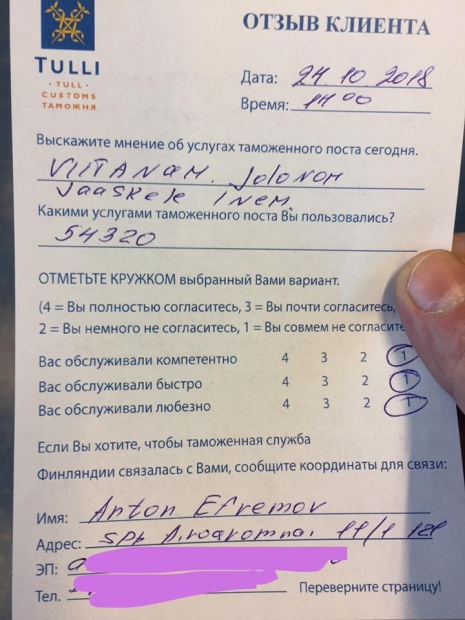 ОТЗЫВ КЛИЕНТА
TULLI
· TULL ·
CUSTOMS
ТАМОЖНЯ
Дата: 24.10.2018
Время: 1400
Выскажите мнение об услугах таможенного поста сегодня.
VIITANAM. JOLONOM
JaasKele INEM
Какими услугами таможенного поста Вы пользовались?
54320
ОТМЕТЬТЕ КРУЖКОМ выбранный Вами вариант.
(4 = Вы полностью согласитесь, 3 = Вы почти согласитесь,
2 = Вы немного не согласитесь, 1 = Вы совсем не согласите
Вас обслуживали компетентно 4 3 2 1
Вас обслуживали быстро 4 3 2 1
Вас обслуживали любезно 4 3 2 1
Если Вы хотите, чтобы таможенная служба
Финляндии связалась с Вами, сообщите координаты для связи:
Имя: Anton Efremov
Адрес: SPb 11/1 121
ЭП:
Тел. Переверните страницу!